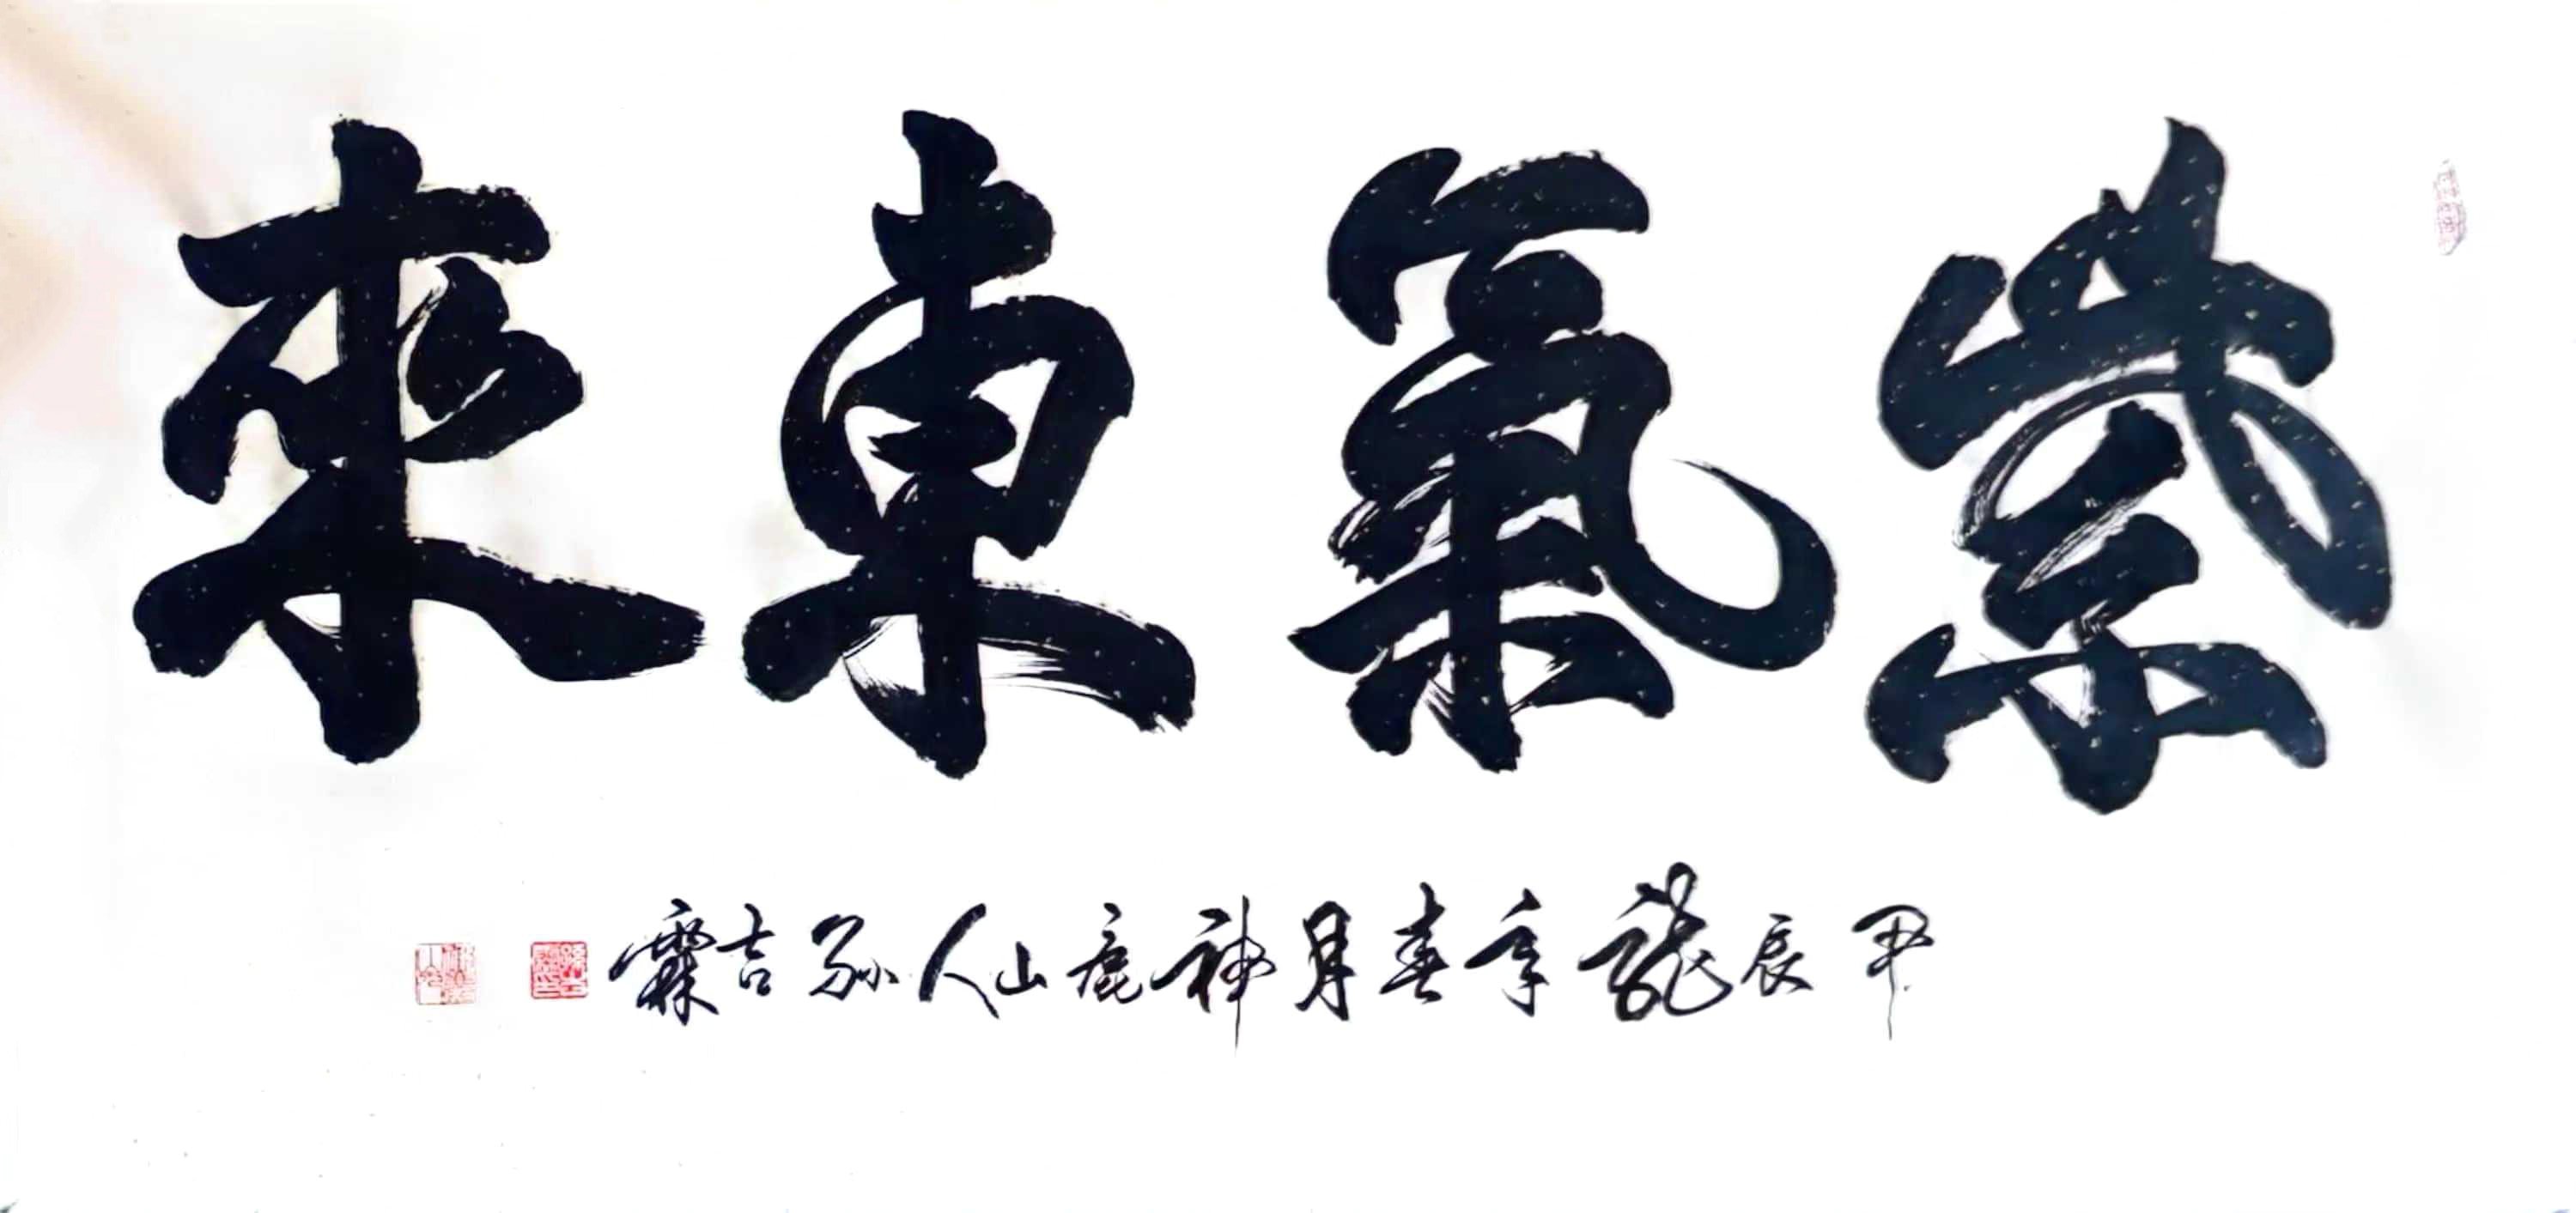 紫氣東來
甲辰龍年春月神鹿山人孫吉霖